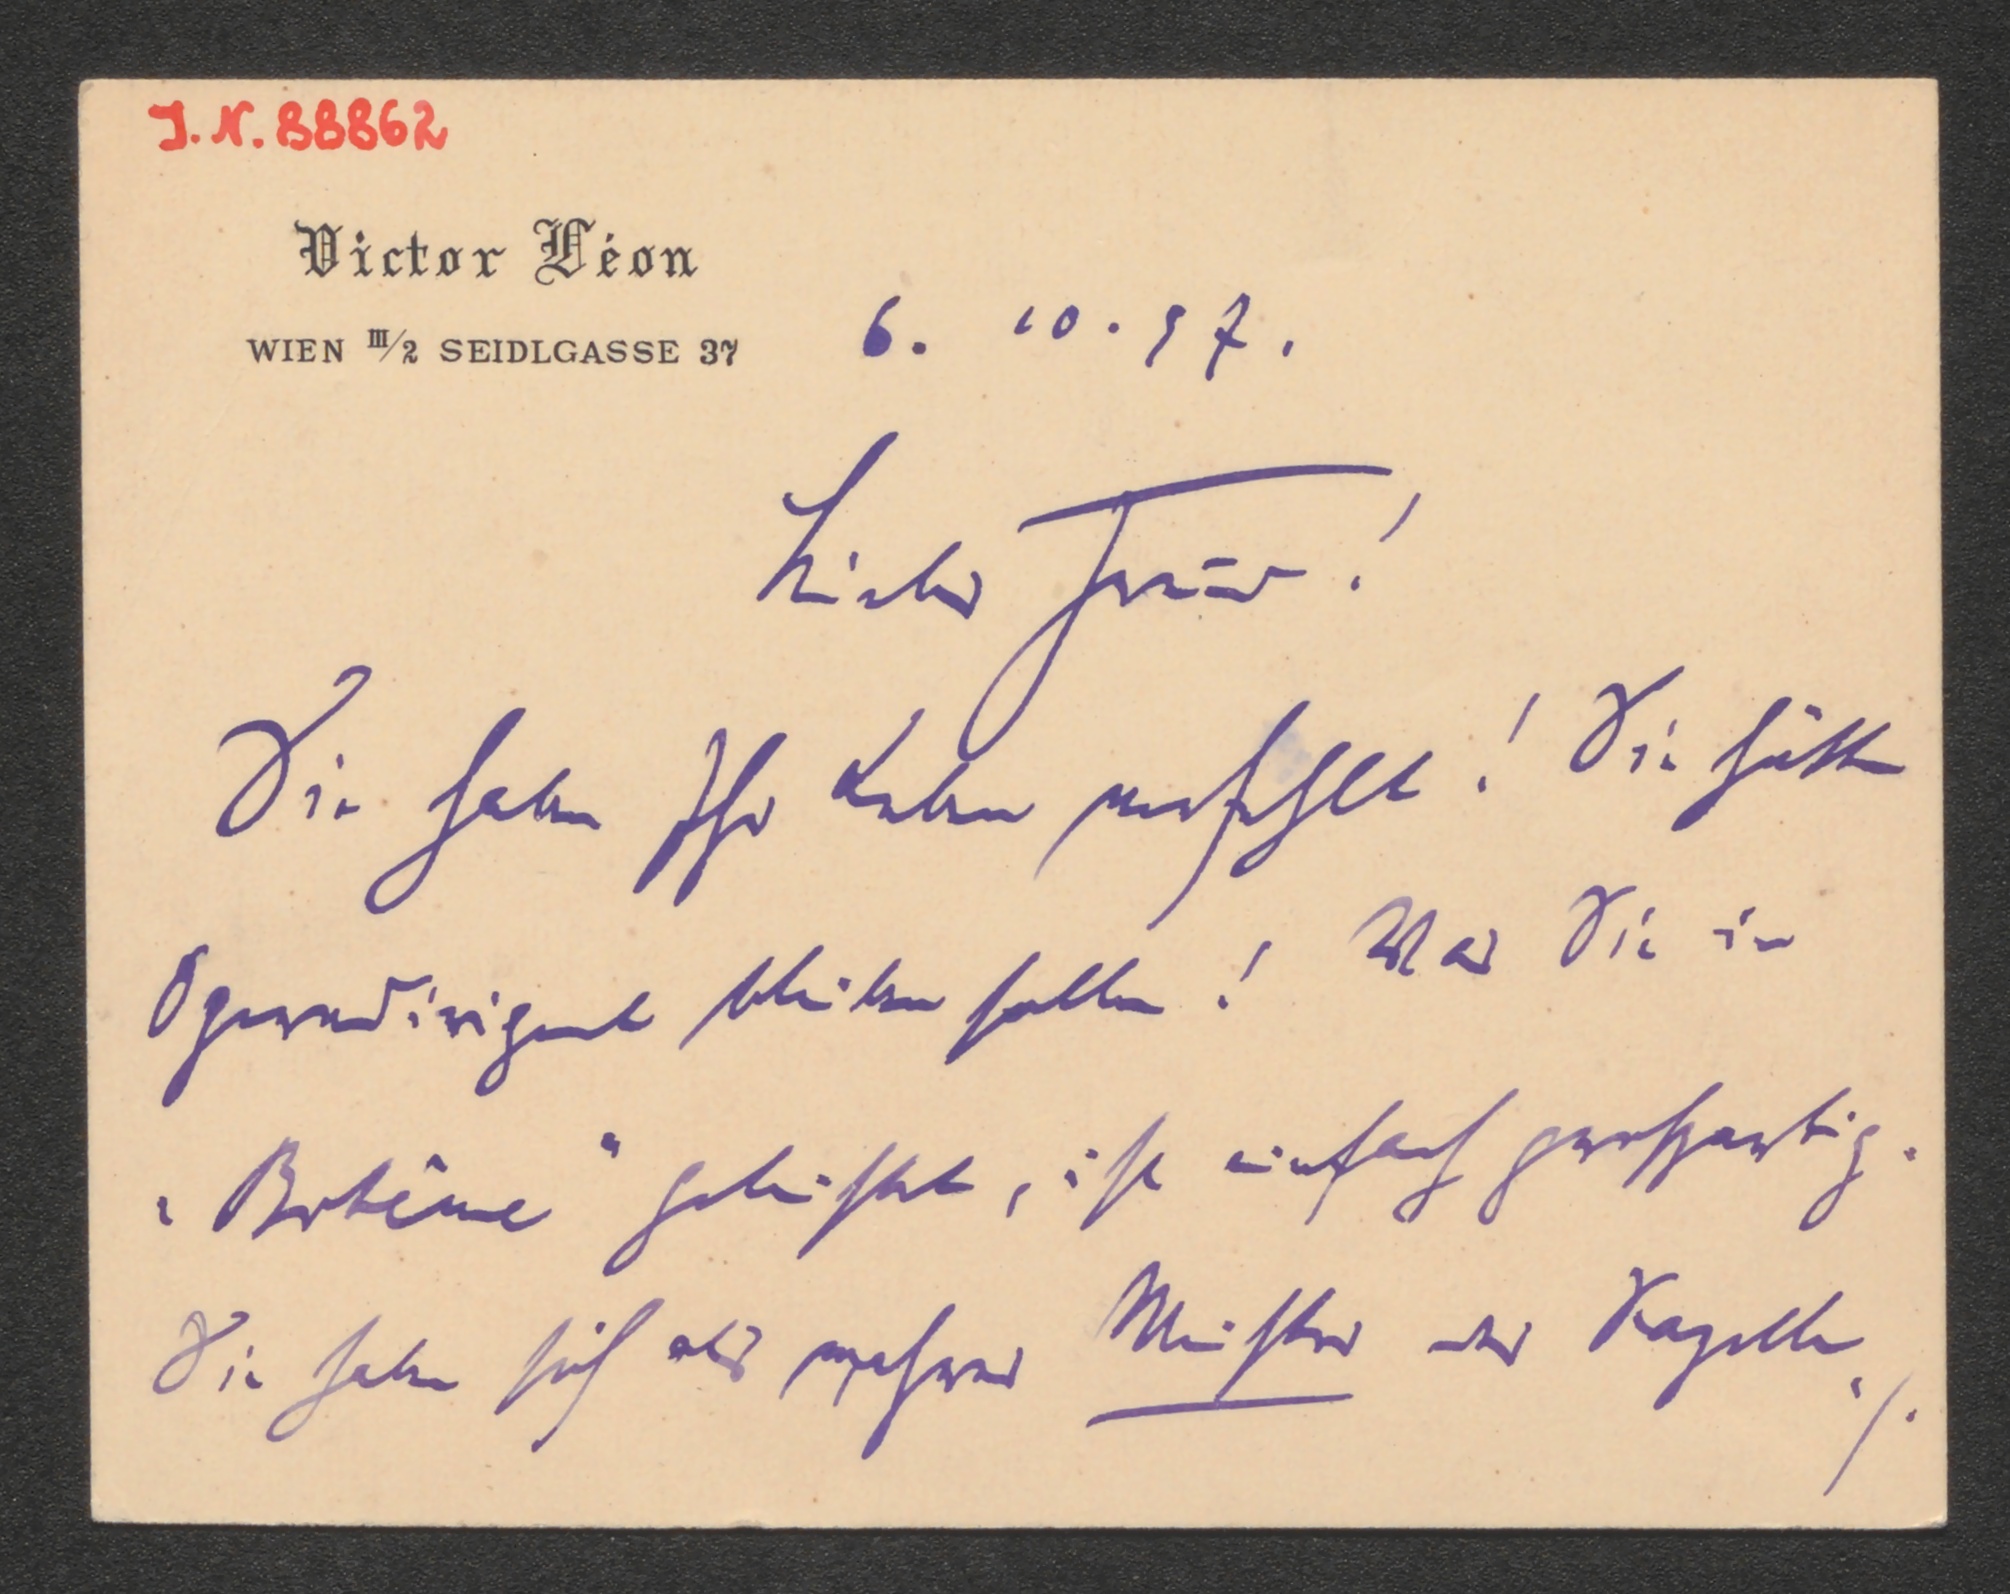 J.N. 88862
Victor Léon
WIEN III/2 SEIDLGASSE 37
6. 10. 97.
Lieber Freund!
Sie haben Ihr Leben verfehlt! Sie hätten
Operndirigent bleiben sollen! Was Sie in
„Bohême" geleistet, ist einfach großartig.
Sie haben sich als wahrer Meister der Kapelle
./.